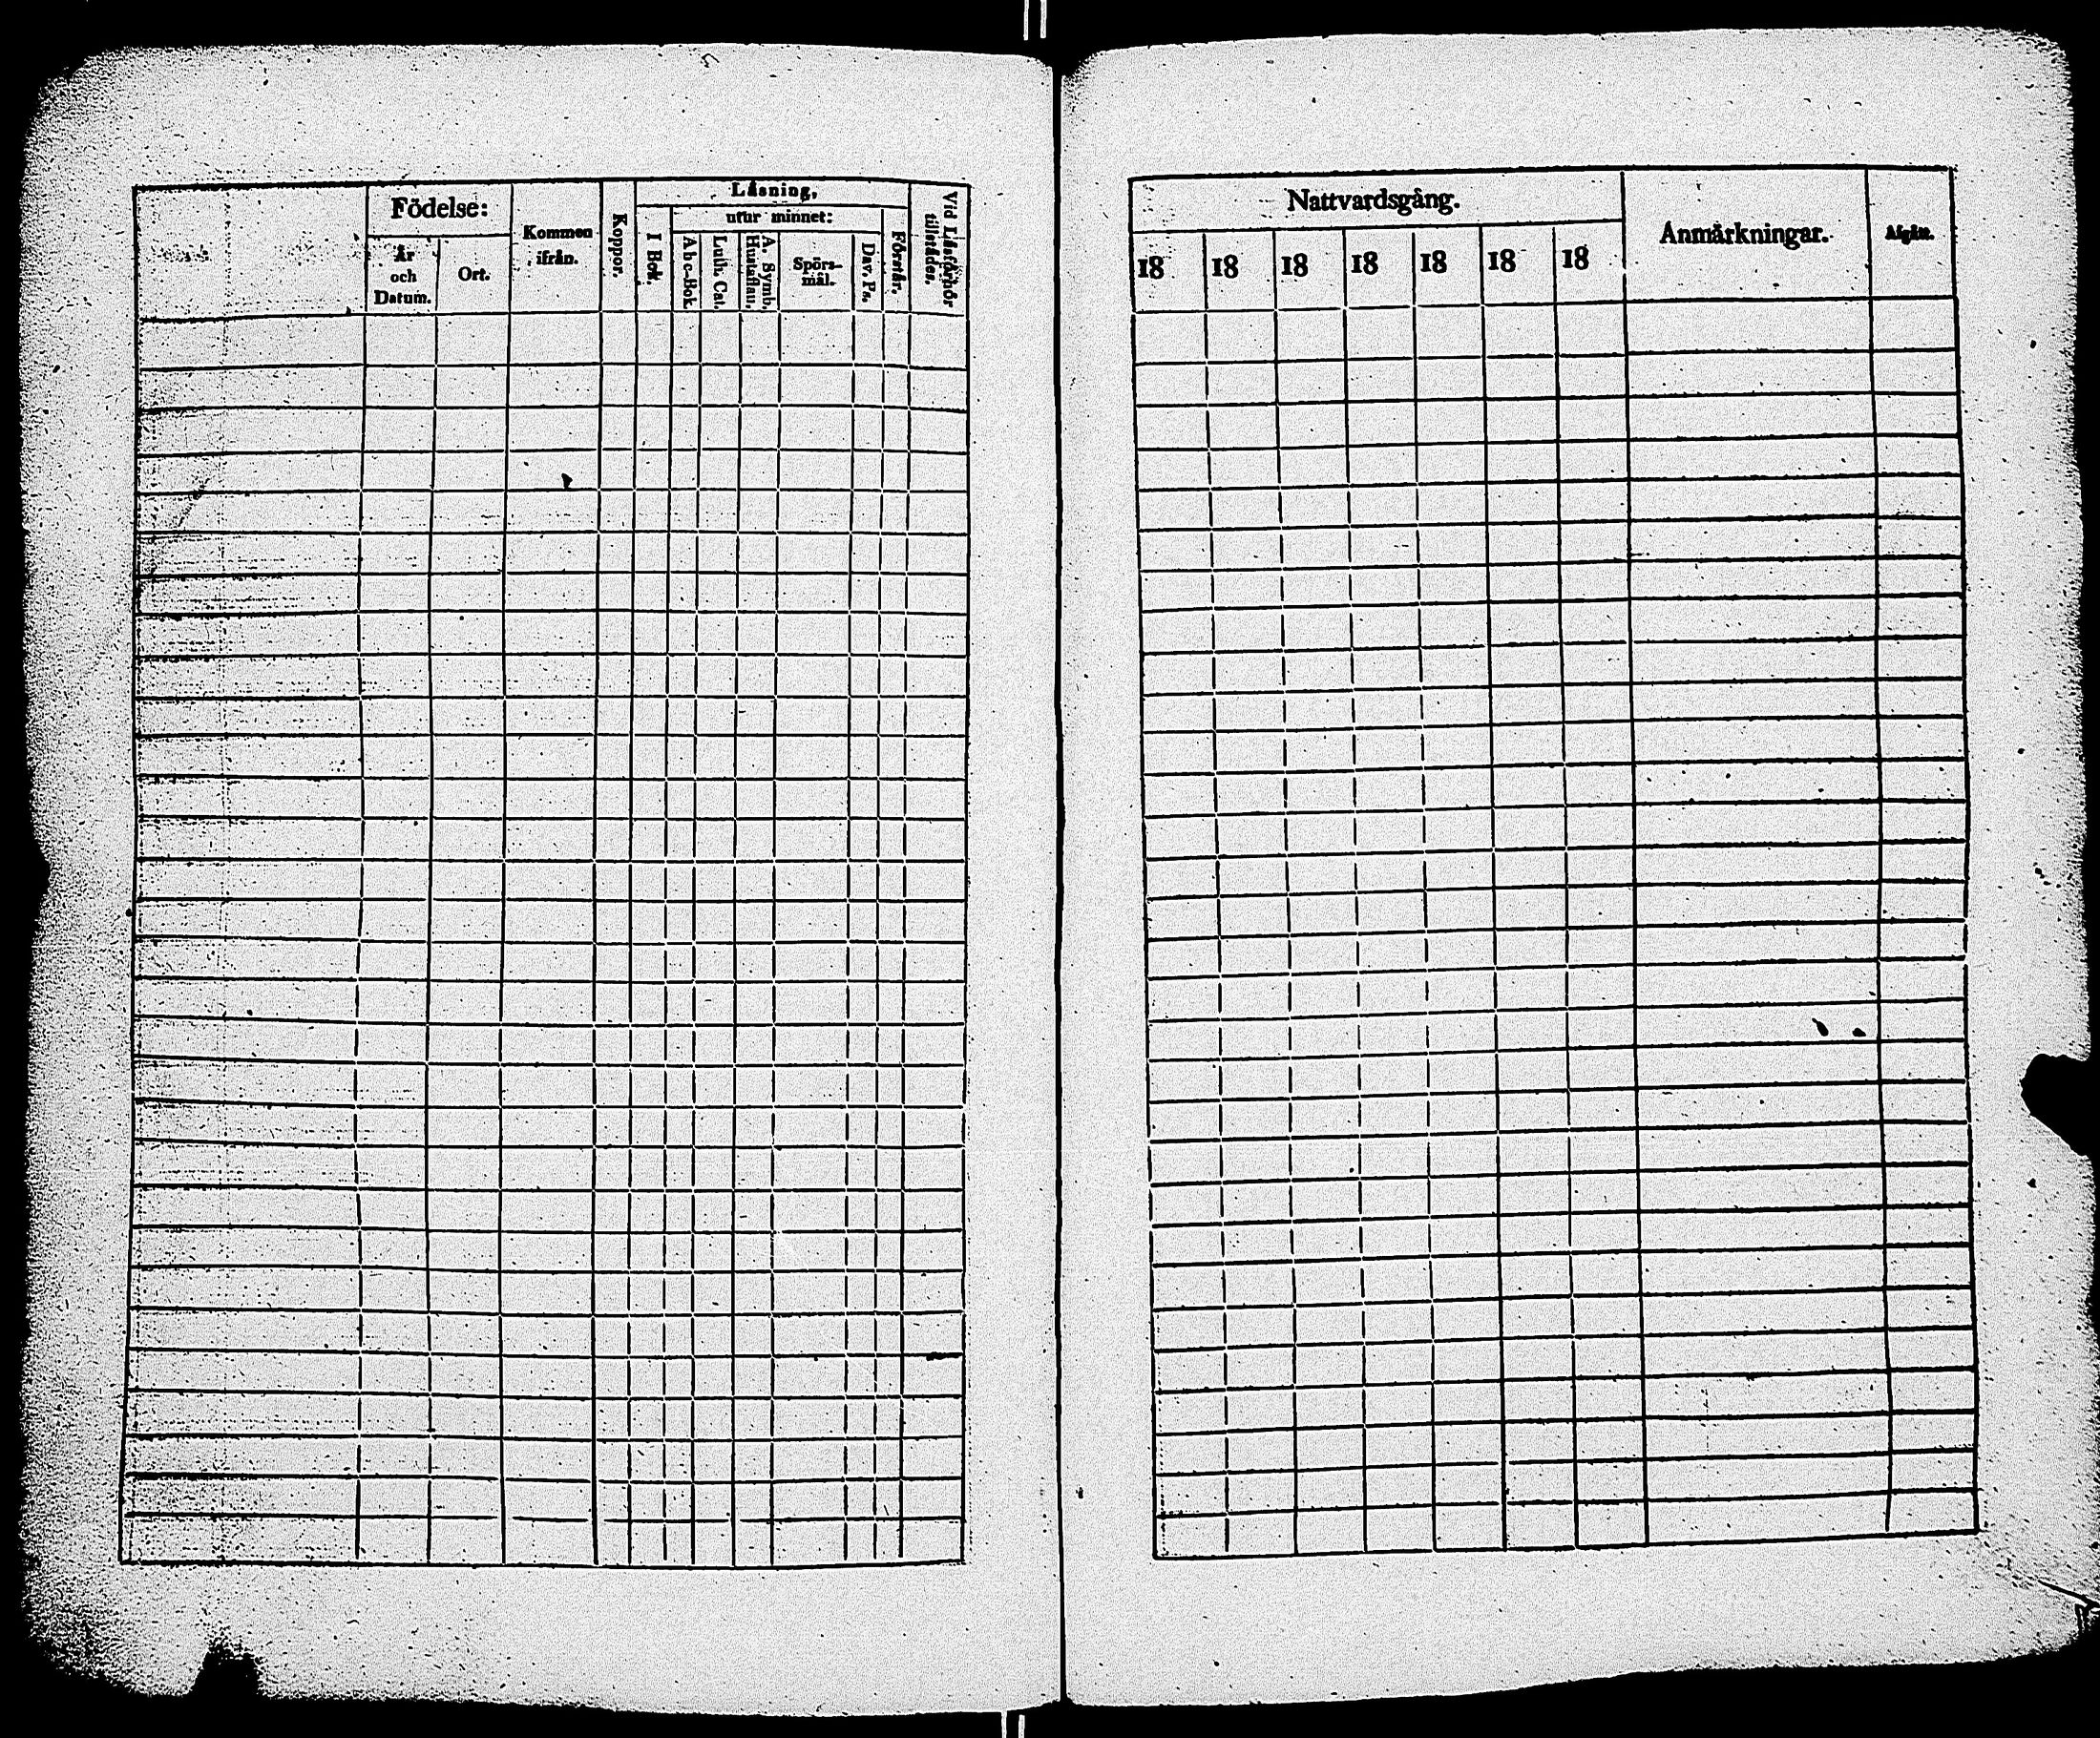 Födelse:
År
och
Datum.
Ort.
Kommen
ifrån.
Koppor.
Läsning,
I Bok.
utur minnet:
Abc-Bok.
Luth. Cat.
A. Symb.
Hustaflan.
Spörs-
mål.
Dav. Ps.
Förstår.
Vid Läsförhör
tillstädes.
Nattvardsgång.
18 18 18 18 18 18 18
Anmärkningar.
Afgått.